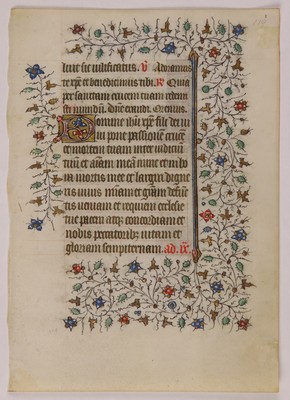 iure sic uilificatus. V Adoramus
te xp̄e et benedicimus tibi. R Quia
per sanctam crucem tuam redem
isti mundū. Dn̄e exaudi. Oremus.
Domine ihū xp̄e fili dei ui
ui pone passionē crucē
et mortem tuam inter iudiciū
tuū et aīam meā nunc et in ho
ra mortis mee et largiri digne
ris uiuis mīam et gr̄am defunc
tis ueniam et requiem ecclesie
tue pacem atq; concordiam et
nobis peccatoribus uitam et
gloriam sempiternam. ad. ix.